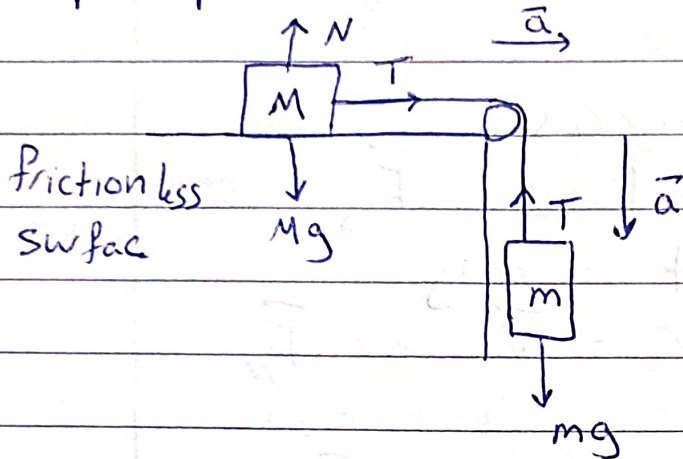 N
a
T
M
frictionless
surfac
Mg
T
a
m
mg